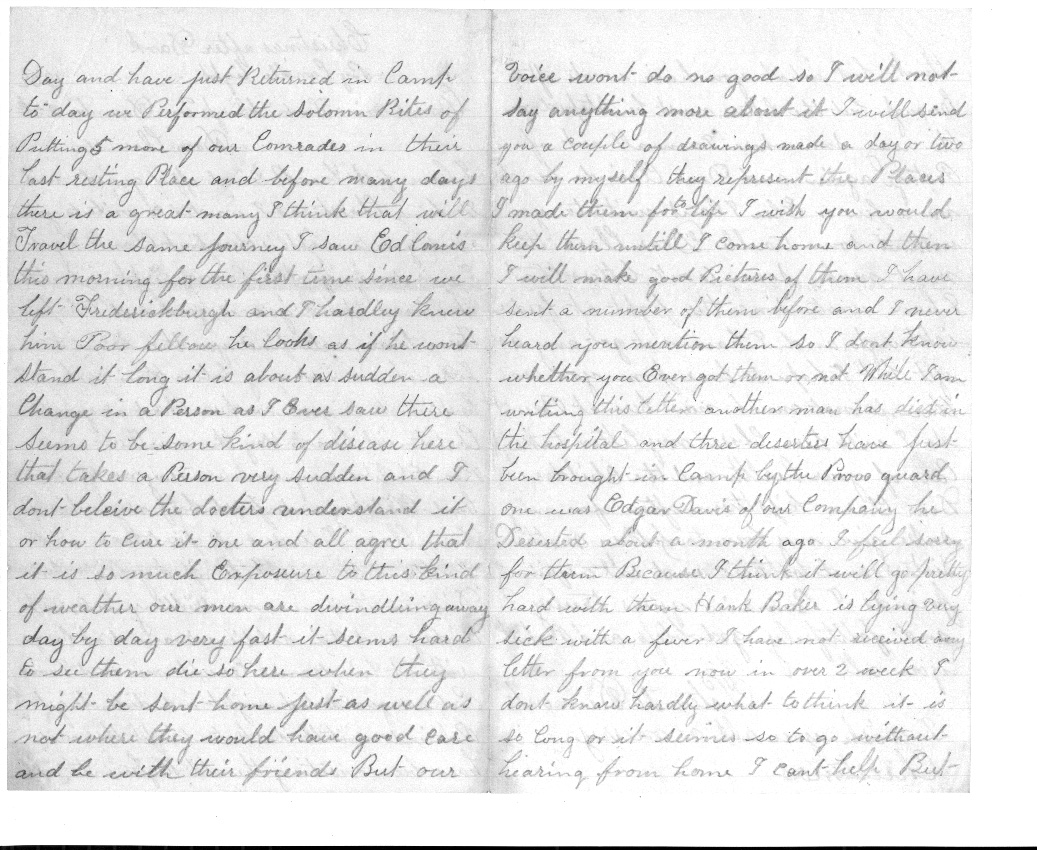 Day and have just Returned in Camp
to day we Performed the Solomn Rites of
Putting 5 more of our Comrades in their
last resting Place and before many days
there is a great many I think that will
Travel the same journey I saw Ed
this morning for the first time since we
left Frederickburgh and I hardley knew
him Poor fellow he looks as if he wont
stand it long it is about as sudden a
Change in a Person as I Ever saw there
seems to be some kind of disease here
that takes a Person very sudden and I
dont beleive the docters understand it
or how to cure it one and all agree that
it is so much Exposeure to this kind
of weather our men are dwindleing away
day by day very fast it seems hard
to see them die so here when they
might be sent home just as well as
not where they would have good care
and be with their friends But our
Voice wont do no good so I will not
say anything more about it I will send
you a couple of drawings made a day or two
ago by myself they represent the Places
I made them for to life I wish you would
keep them untill I come home and then
I will make good Pictures of them I have
sent a number of them before and I never
heard you mention them so I dont know
whether you Ever got them or not While I am
writing this letter another man has died in
the hospital and three deserters have just
been brought in Camp by the Provo guard
one was Edgar Davis of our Company he
Deserted about a month ago I feel sorry
for them Because I think it will go pretty
hard with them Hank Baker is lying very
sick with a fever I have not received any
letter from you now in over 2 week I
dont know hardly what to think it is
so long or it seems so to go without
hearing from home I cant help But